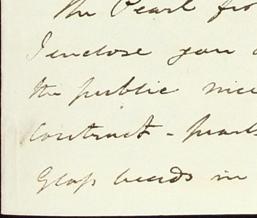 The Pearl fro
I enclose you
the public nice
contract - pearls
Glass beads in